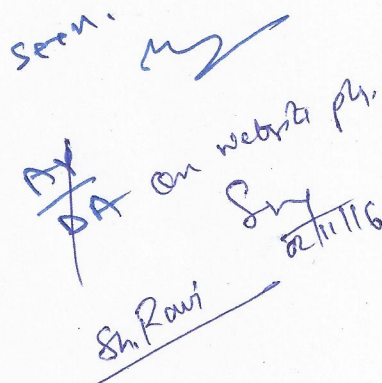 seen.
AY
DA on website pls.
02/11/16
Sh. Ravi